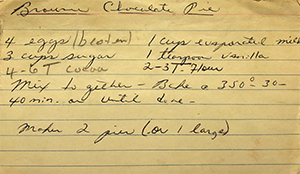 Brownie Chocolate Pie
4 eggs (beaten) 1 cup evaporated milk
3 cups sugar 1 teaspoon vanilla
4-6 T cocoa 2-3 T. flour
Mix together - Bake @ 350° 30-
40 min. or until done.
Makes 2 pies (or 1 large)